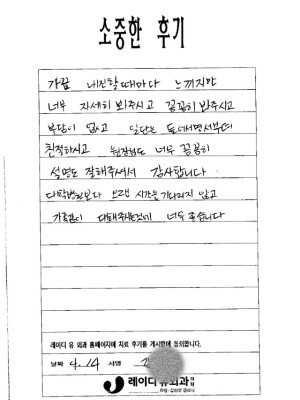 소중한 후기
가끔 내진할때마다 느끼지만
너무 자세히 봐주시고 꼼꼼히 봐주시고
부담이 없고 일단은 들어서면서부터
친절하시고 원장님도 너무 꼼꼼히
설명도 잘해주셔서 감사합니다
대학병원보다 오랜 시간을 기다리지 않고
가족같이 대해주시는것에 너무 좋습니다
레이디 유 외과 홈페이지에 치료 후기를 게시함에 동의합니다.
날짜 4.14 서명
레이디유외과